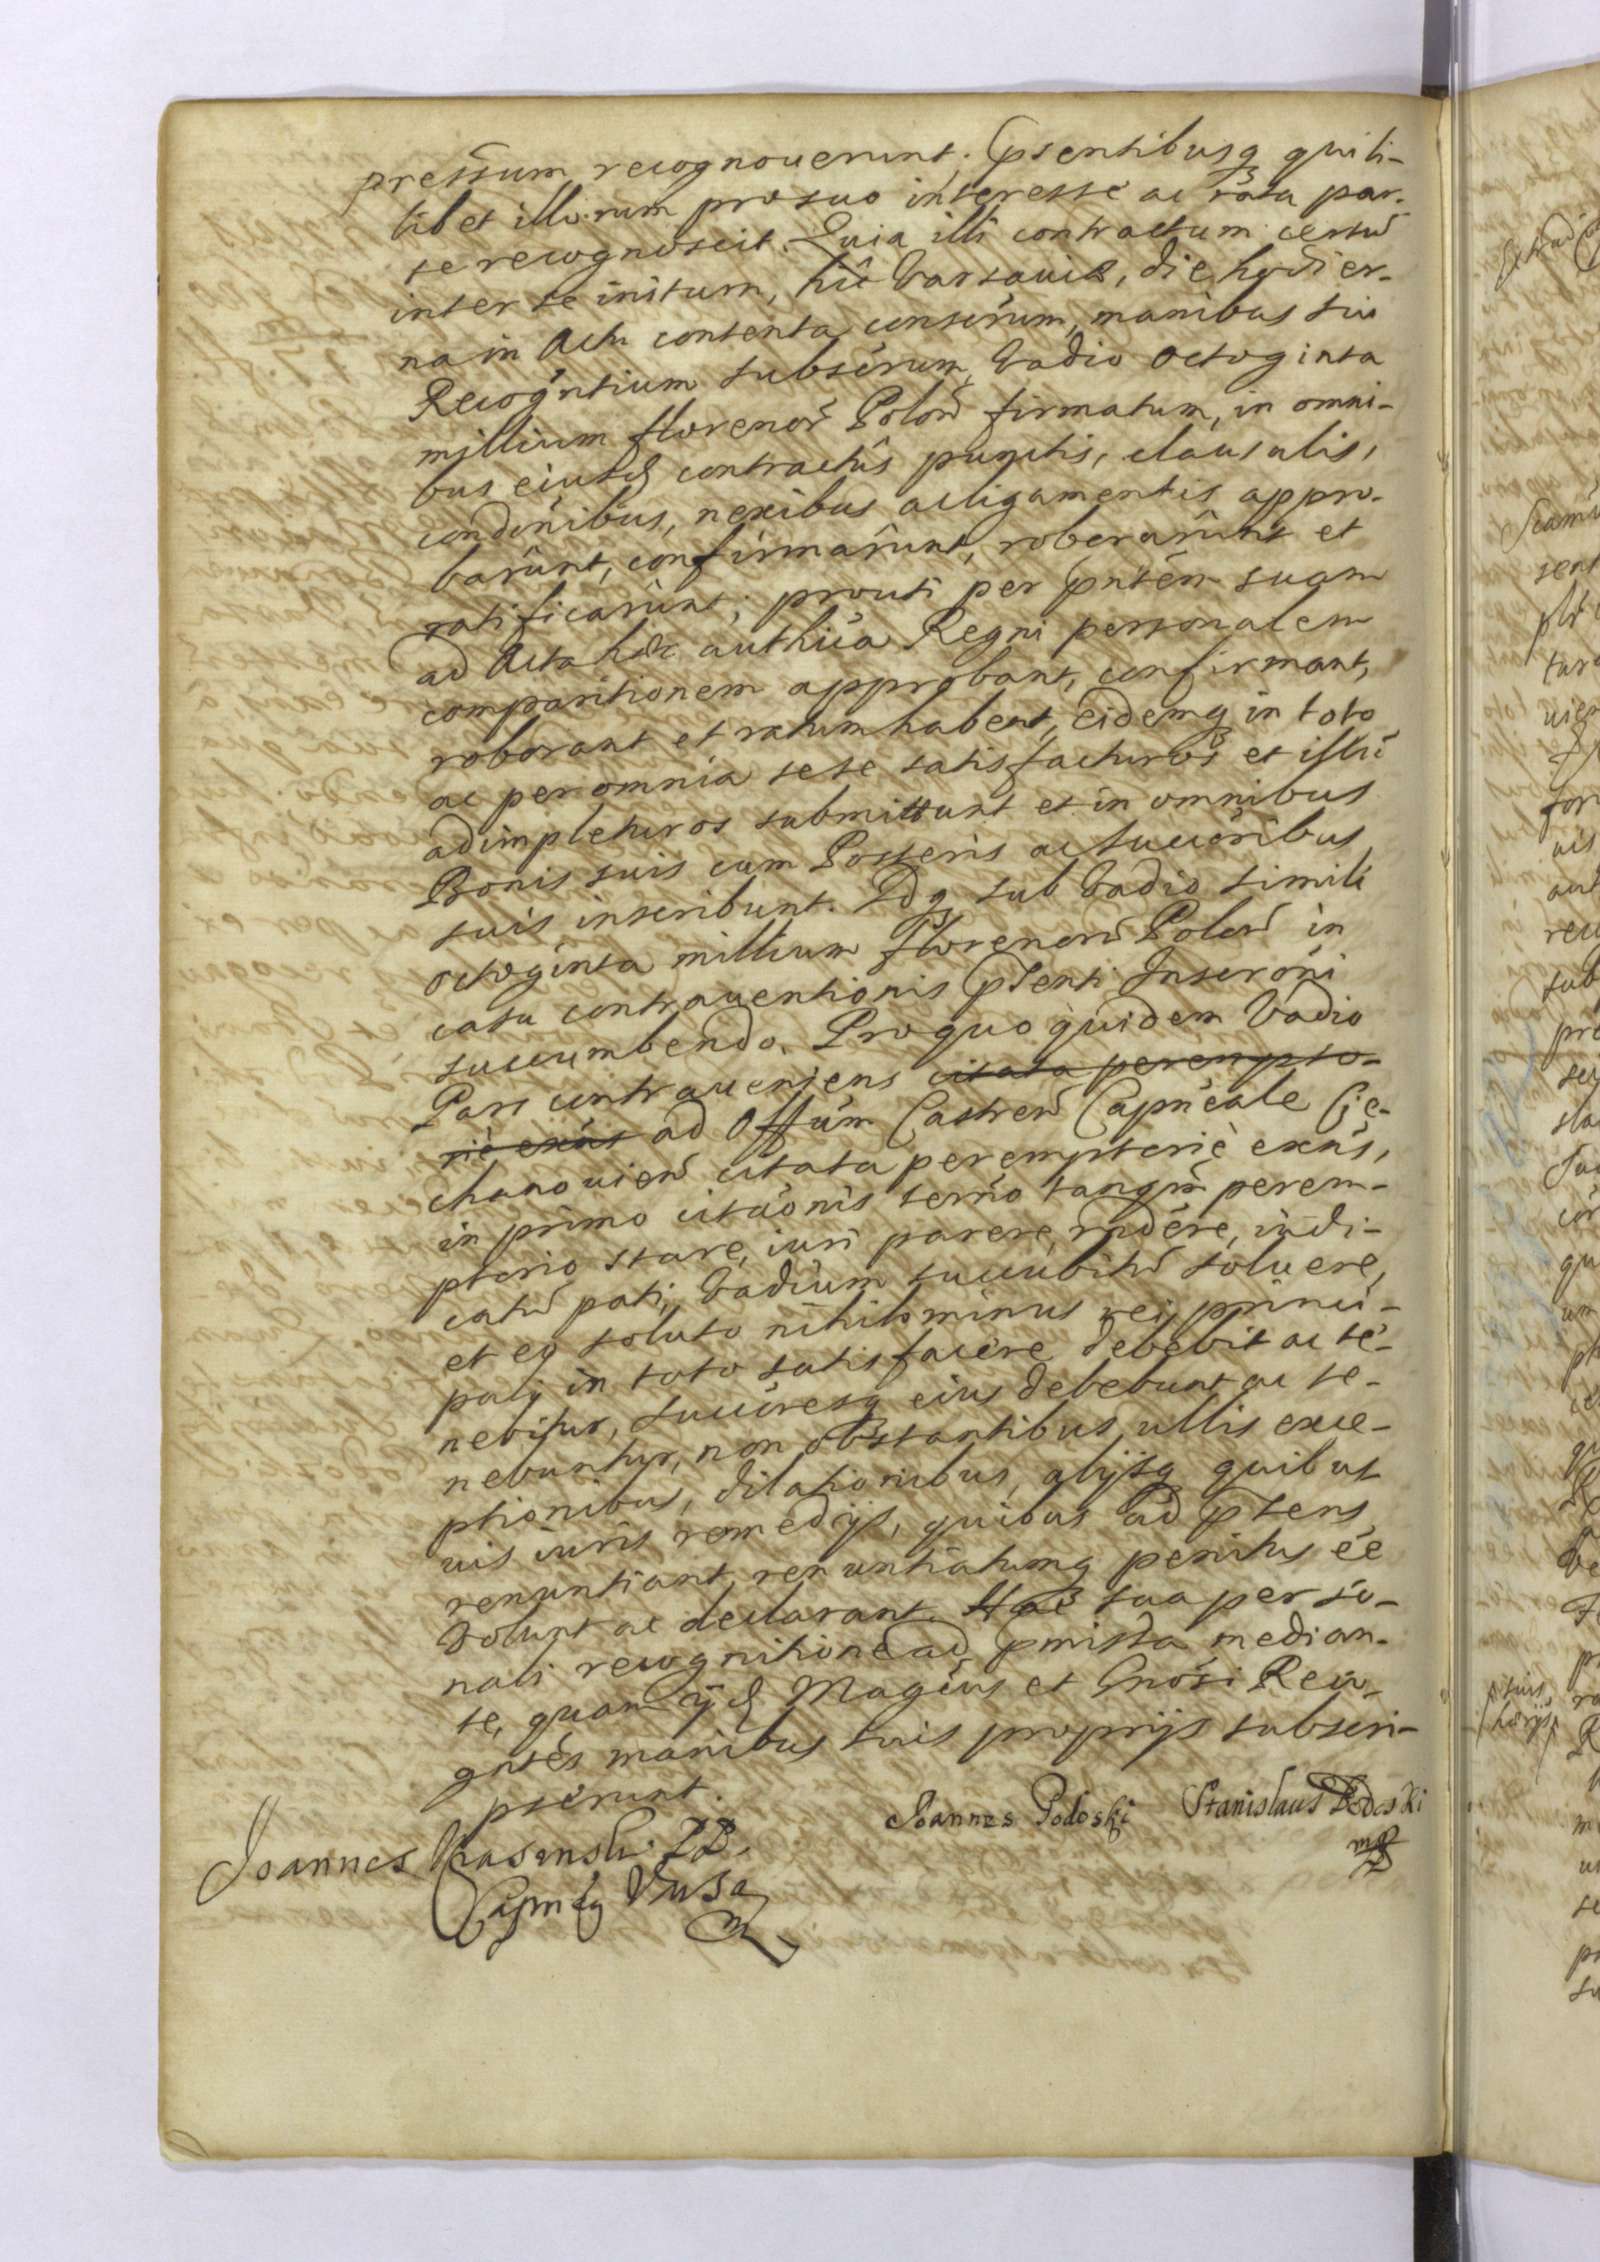 pressum recognouerunt. Psentibusq quili-
libet illorum pro suo interesse ac rata par-
te recognoscit. Quia illi contractum certũ
inter se initum, hic Varsauiæ, die hodier-
na in Actu contenta conscrium, manibus sui
Recogntium subscrum, Vadio octoginta
millium florenoř Poloñ firmatum, in omni-
bus eiusd contractûs punctis, clausulis,
condônibus, nexibus ac ligamentis appro-
barunt, confirmarunt, roborarunt et
ratificarunt; prouti per pntem suam
ad Acta hæc authica Regni personalem
comparitionem approbant, confirmant,
roborant et ratum habent, eidemq in toto
ac per omnia sese satisfacturos et illũ
adimpleturos submittunt et in omnibus
Bonis suis cum Posteris ac succoribus
suis inscribunt. Idq sub Vadio simili
octoginta millium florenorũ Poloñ in
casu contrauentionis Psenti Inscroni
succumbendo. Pro quo quidem Vadio
Pars contraueniens citata perempto-
riè exñs ad Offum Castreñ Capñeale Cie-
chanouieñ citata peremptoriè exñs,
in primo citaonis termo tanqm perem-
ptorio stare, iuri parere, rndere, iudi-
catũ pati, Vadium succubitũ soluere,
et eo soluto nihilominus rei princi-
palj in toto satisfacere debebit ac te-
nebitur, succoresq eius debebunt ac te-
nebuntur, non obstantibus ullis exce-
ptionibus, dilationibus, alijsq quibus
uis iuris remedijs, quibus ad Psens
renuntiant, renuntiatumq penitus ee
Volunt ac declarant. Hac sua perso-
nali recognitione ad Pmissa median-
te, quam ijd Magcus et Gnosi Reco-
gntes manibus suis proprijs subscri-
pserunt.
Joannes Podoski Stanislaus Podoski
mp
Joannes Krasinski P.P.